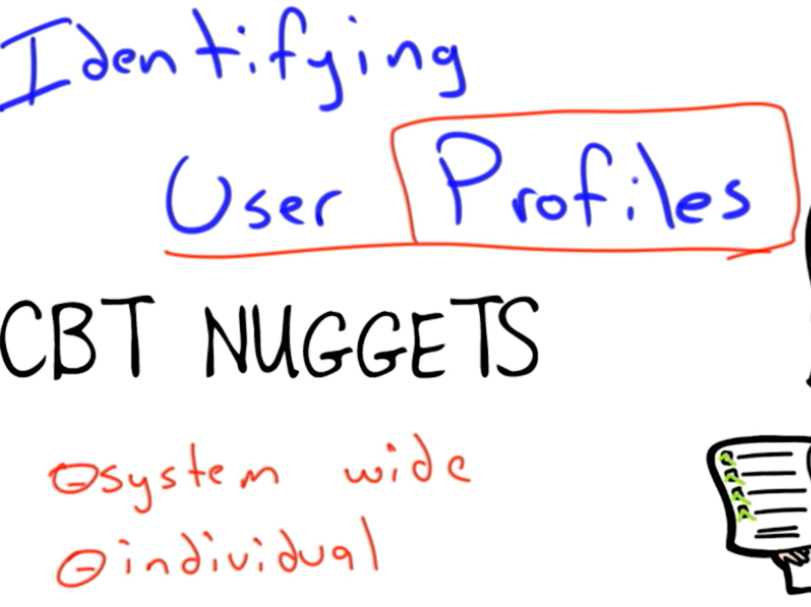 Identifying
User Profiles
CBT NUGGETS
system wide
individual